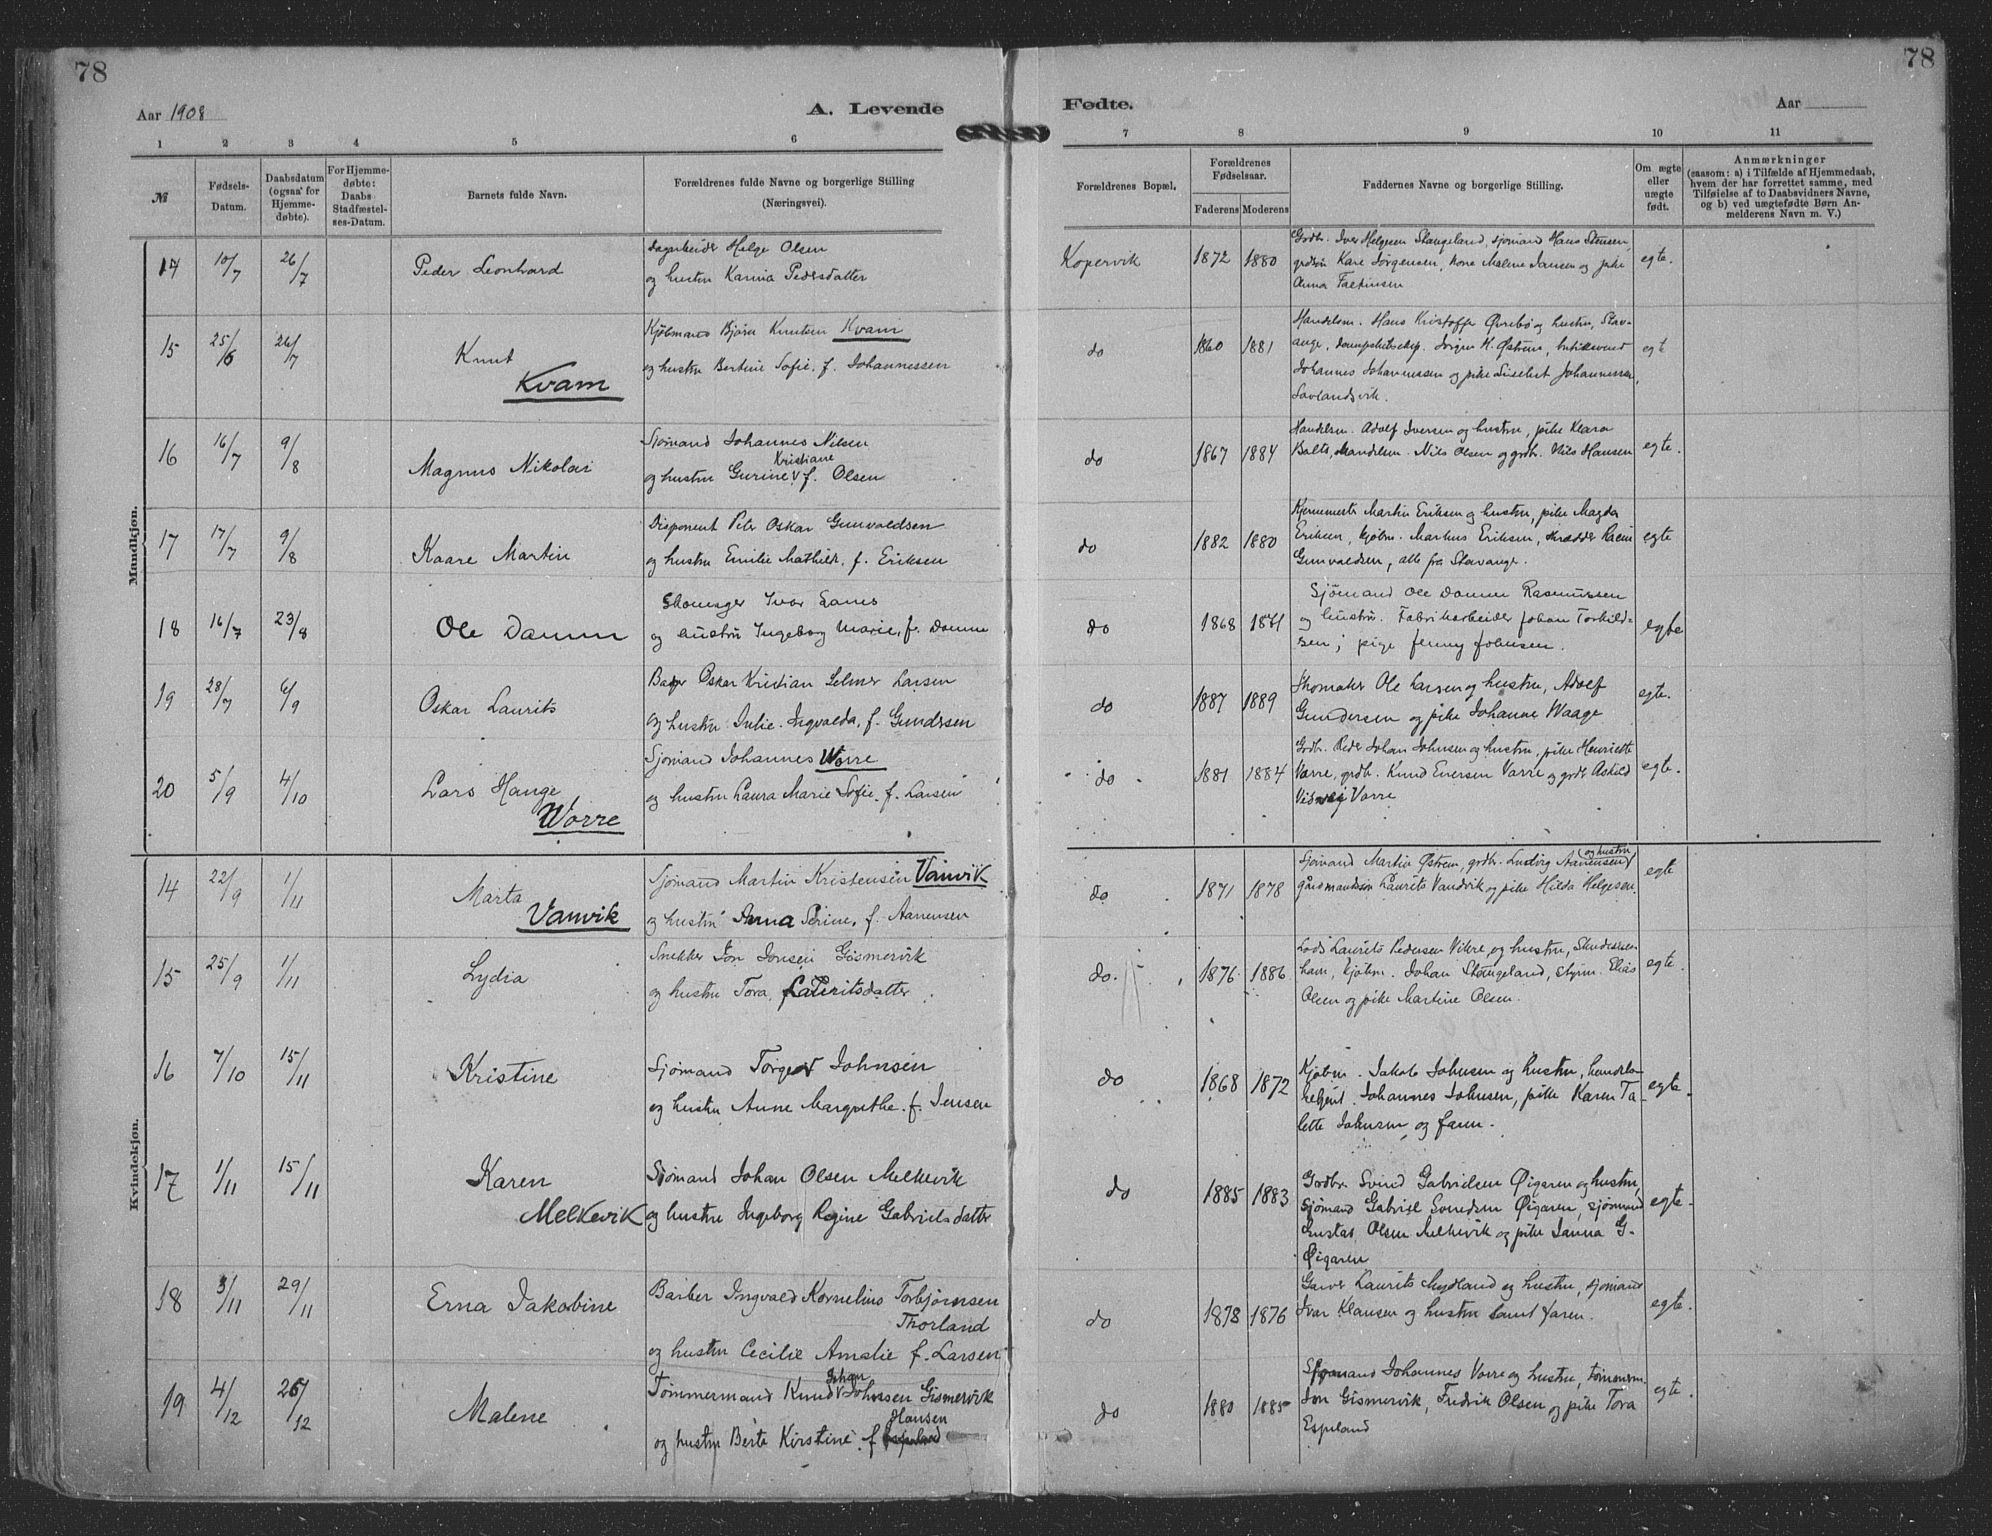 78
78
Aar 1908
A. Levende
Fødte.
Aar
1 2 3 4 5 6 7 8 9 10 11
№
Fødsels-
Datum.
Daabsdatum
(ogsaa for
Hjemme-
døbte).
For Hjemme-
døbte:
Daabs
Stadfæstel-
ses-Datum.
Barnets fulde Navn.
Forældrenes fulde Navne og borgerlige Stilling
(Næringsvei).
Forældrenes Bopæl.
Forældrenes
Fødselsaar.
Faderens Moderens
Faddernes Navne og borgerlige Stilling.
Om ægte
eller
uægte
født.
Anmærkninger
(saasom: a) i Tilfælde af Hjemmedaab,
hvem der har forrettet samme, med
Tilføielse af to Daabsvidners Navne,
og b) ved uægtefødte Børn An-
melderens Navn m. V.)
Mandkjøn.
14 10/7 26/7
Peder Leonhard
Dagarbeider Helge Olsen
og hustru Karina Pedersdatter
Kopervik 1872 1880
Grdb. Iver Helgesen Stangeland, sjømand Hans Stensen,
grdsøn Kare Jørgensen, kone Malene Jansen og pike
Anna
egte.
15 25/6 26/7
Knut
Kvam
Kjøbmand Bjørn Knutsen Kvam
og hustru Bertine Sofie. f. Johannessen
do 1860 1881
Handelsm. Hans Kristoffer Øvrebø og hustru, Stav-
anger, Jørgen H. Østrem,
Johannes Johannessen og pike Johannessen,
egte
16 16/7 9/8
Magnus Nikolai
Sjømand Johannes Nilsen
Kristiane
og hustru Gurine f. Olsen
do 1867 1884
Handelsm. Adolf Iversen og hustru, pike Klara
Handelsm. Nils Olsen og grdb. Nils Hansen
egte.
17 17/7 9/8
Kaare Martin
Disponent Peter Oskar Gunvaldsen
og hustru Emilie Mathilde, f. Eriksen
do 1882 1880
Martin Eriksen og hustru, pike Magda
Eriksen, kjøbm. Markus Eriksen, skrædder
Gunvaldsen, alle fra Stavanger.
egte
18 16/7 23/8
Ole Damm
Skomager Ivar
og hustru Ingeborg Marie, f. Damm
do 1868 1871
Sjømand Ole Damm Rasmussen
og hustru. Fabrikarbeider Johan Torkild-
sen; pige Jenny Johnsen.
egte
19 28/7 6/9
Oskar Laurits
Bager Oskar Kristian Selmer Larsen
og hustru Julie Ingvalda, f. Gundersen
do 1887 1889
Skomaker Ole Larsen og hustru, Adolf
Gundersen og pike Johanne Waage
egte.
20 5/9 4/10
Lars Hauge
Worre
Sjømand Johannes Worre
og hustru Laura Marie Sofie. f. Larsen
do 1881 1884
Grdb. Peder Johan Johnsen og hustru, pike Henriette
Vorre, grdb. Knud Eversen Vorre og grdb. Askild
Visnæs Vorre
egte.
Kvindekjøn.
14 22/9 1/11
Marta
Vanvik
Sjømand Martin Kristensen Vanvik
og hustru Anna Serine, f. Aanensen
do 1871 1878
og hustru
Sjømand Martin Østrem, grdb. Ludvig Aanensen
gårdmandssøn Laurits Vandvik og pike Hilda Helgesen.
egte
15 25/9 1/11
Lydia
Snekker Jon Jonsen Gismervik
og hustru Tora, Lauritsdatter
do. 1876 1886
Lods Laurits Pedersen Vikre og hustru, Skudesnes-
havn, kjøbm. Johan Stangeland, styrm. Elias
Olsen og pike Martine Olsen.
egte.
16 7/10 15/11
Kristine
Sjømand Torger Johnsen
og hustru Anne Margrethe. f. Jensen
do 1868 1872
Kjøbm. Jakob Johnsen og hustru, handels-
betjent Johannes Johnsen, pike Karen Ta-
lette Johnsen og faren.
egte.
17 1/11 15/11
Karen
Melkevik
Sjømand Johan Olsen Melkevik
og hustru Ingeborg Regine Gabrielsdatter
do 1885 1883
Grdbr. Svend Gabrielsen Øigaren og hustru,
sjømand Gabriel Svendsen Øigaren, sjømand
Gustav Olsen Melkevik og pike Janna G.
Øigaren
egte.
18 3/11 29/11
Erna Jakobine
Barber Ingvald Kornelius Torbjørnsen
Thorland
og hustru Cecilie Amalie f. Larsen
do 1878 1876
Garver Laurits Mydland og hustru, sjømand
Ivar Klausen og hustru samt faren.
egte.
19 4/12 26/12
Malene
Johan
Tømmermand Knud Johnsen Gismervik
Hansen
og hustru Berte Kirstine. f.
do 1880 1885
Sjømand Johannes Vorre og hustru, tømmerm.
Jon Gismervik, Fredrik Olsen og pike Tora
Espeland
egte.